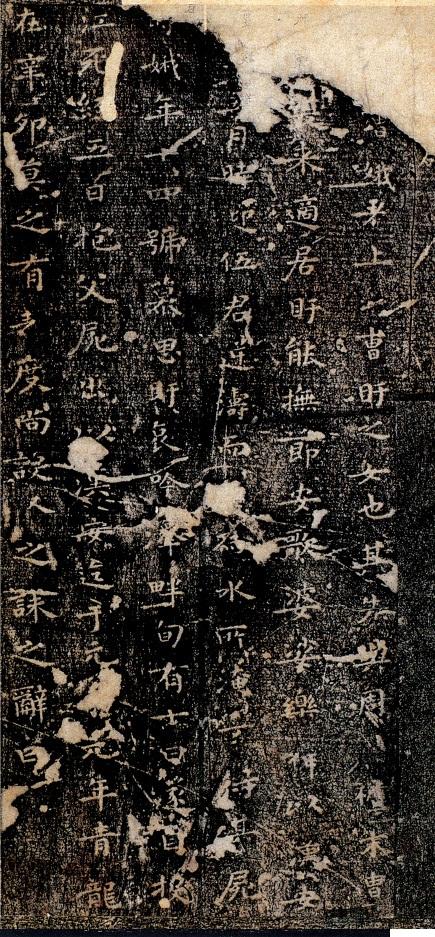 娥者上曹盱之女也其先與周禮末胄
來適居盱能撫節安歌婆娑樂神以漢安
月時迎伍君逆濤而為水所淹得其屍
娥年十四號慕思盱哀吟澤畔旬有七日遂自投
江死經五日抱父屍出以漢安迄于元嘉元年青龍
在辛卯莫之有表度尚設之誄之辭曰